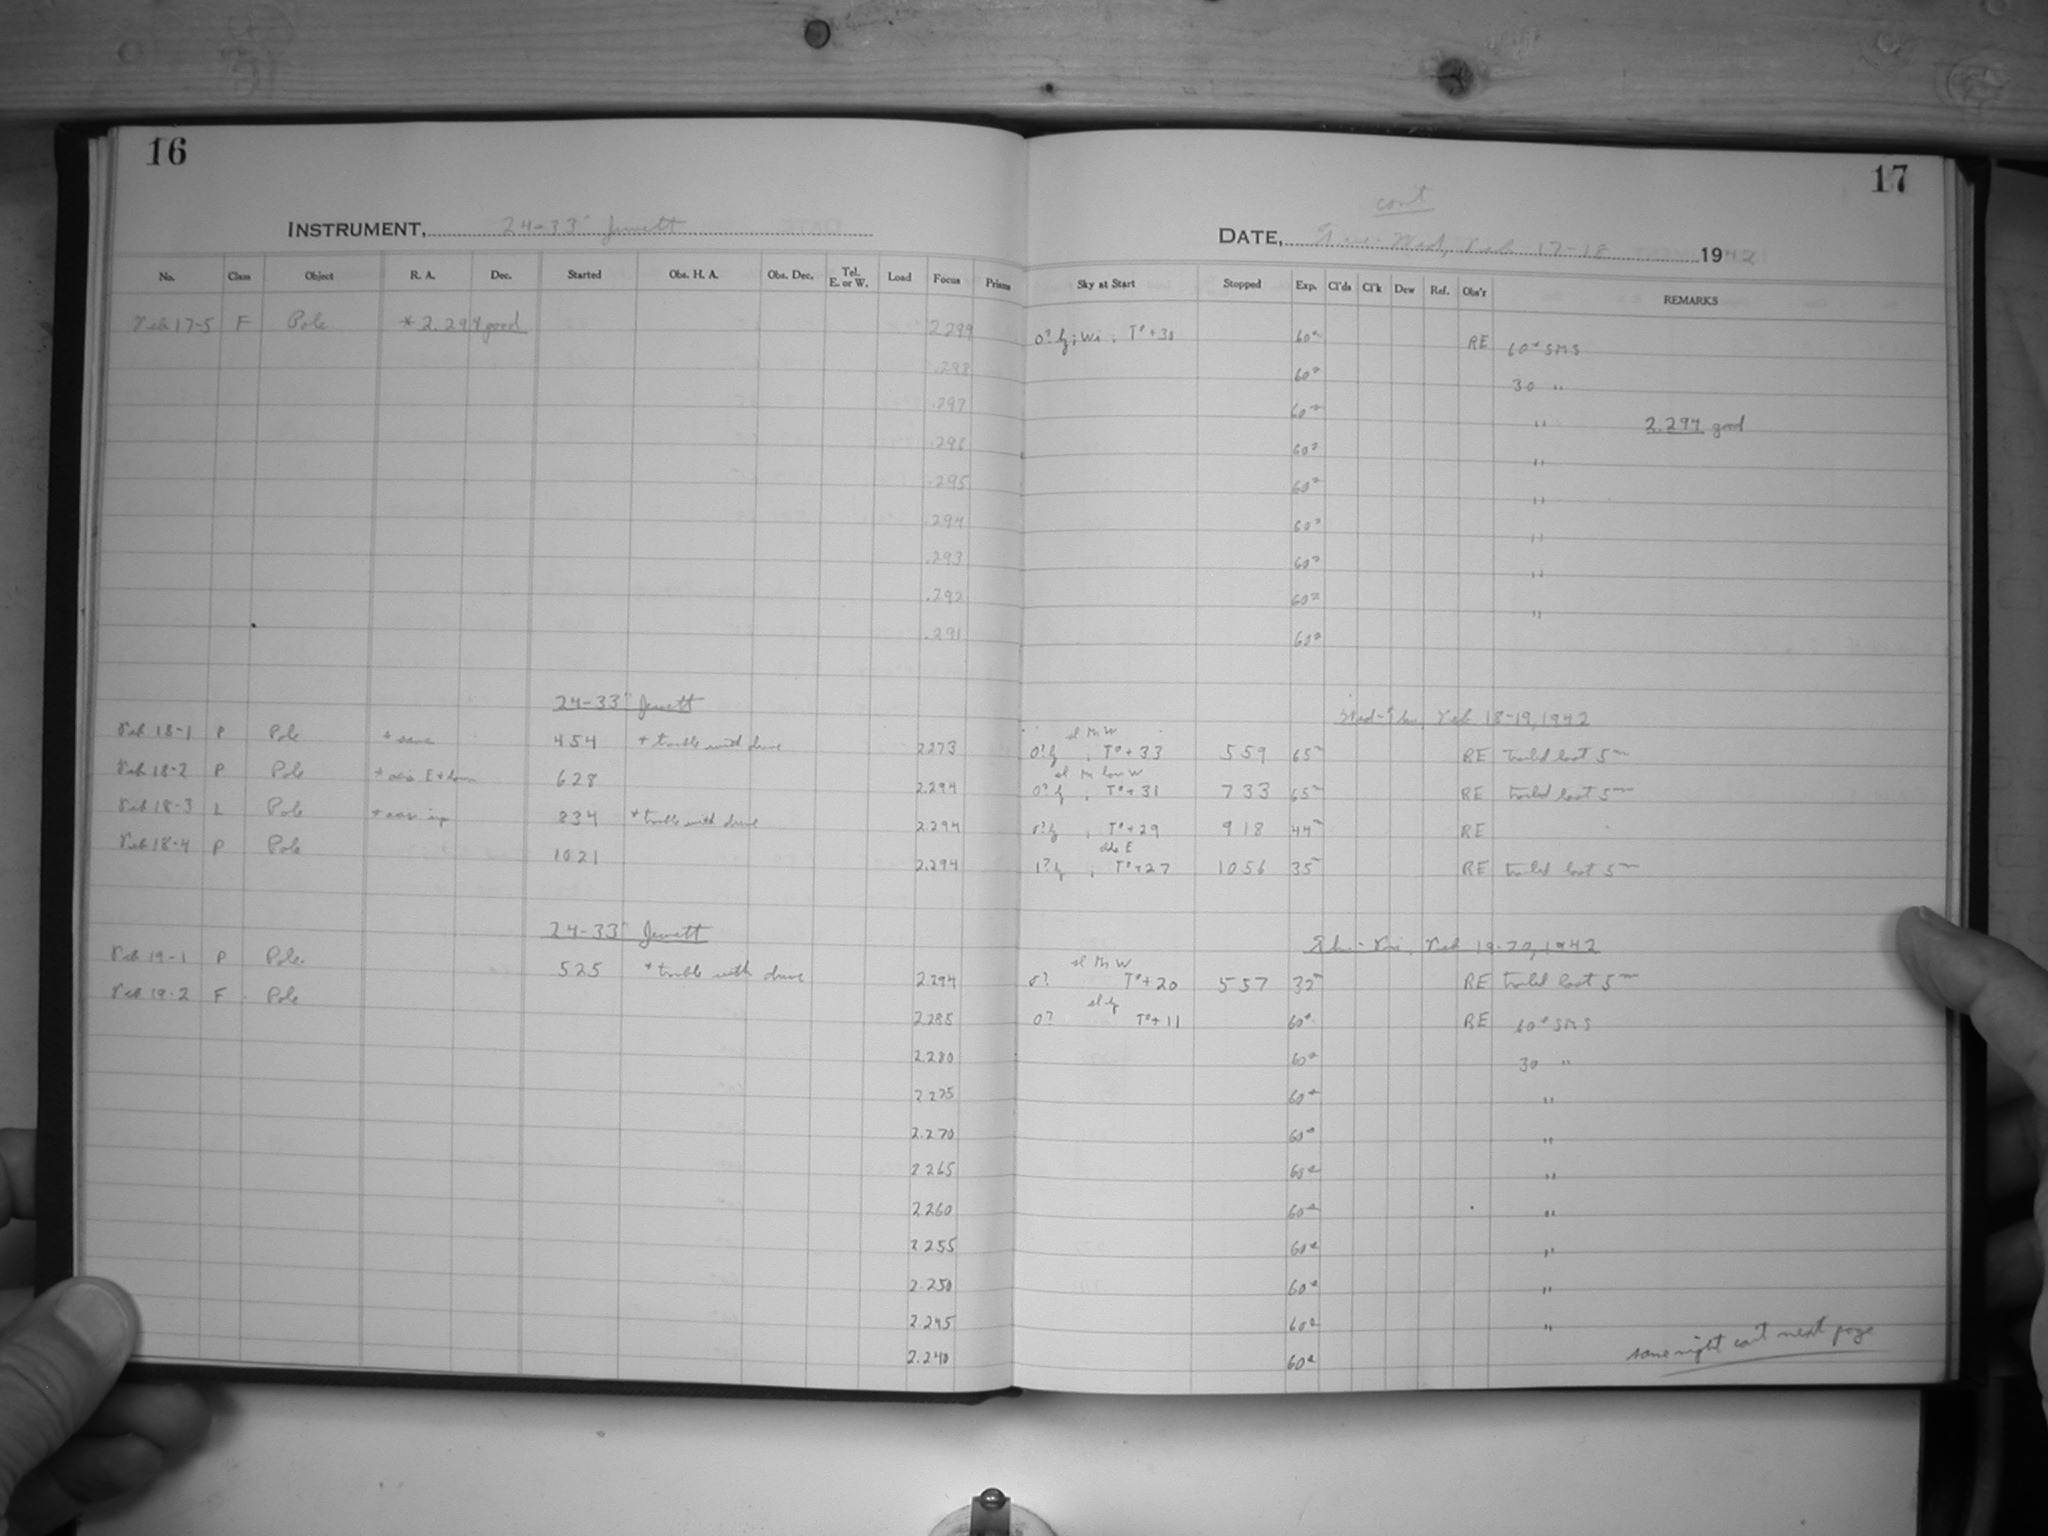 16
17
cont
INSTRUMENT, 24-33" Jewett
DATE, Tues-Wed, Feb 17-18 1942
No. Class Object R. A. Dec. Started Obs. H. A. Obs. Dec. Tel. E. or W. Load Focus Prisms Sky at Start Stopped Exp. Cl'ds Cl'k Dew Ref. Obs'r REMARKS
Feb 17-5 F Pole * 2.294 good 2.299 0? hz; Wi; T°+30 60s RE 60s SMS
.298 60s 30 "
.297 60s " 2.294 good
.296 60s "
.295 60s "
.294 60s "
.293 60s "
.292 60s "
.291 60s
24-33" Jewett Wed-Thu, Feb 18-19, 1942
sl Mn W
Feb 18-1 P Pole 454 * trouble with drive 2.273 0? hz ; T°+33 559 65m RE trailed last 5m
sl Mn low W
Feb 18-2 P Pole 628 2.294 0? hz ; T°+31 733 65m RE trailed last 5m
Feb 18-3 L Pole 834 * trouble with drive 2.294 0? hz ; T°+29 918 44m RE
Feb 18-4 P Pole 1021 2.294 1? hz ; T°+27 1056 35m RE trailed last 5m
24-33" Jewett Thu-Fri, Feb 19-20, 1942
sl Mn W
Feb 19-1 P Pole. 525 * trouble with drive 2.294 0? T°+20 557 32m RE trailed last 5m
sl hz
Feb 19-2 F Pole 2.285 0? T°+11 60s RE 60s SMS
2.280 60s 30 "
2.275 60s "
2.270 60s "
2.265 60s "
2.260 60s "
2.255 60s "
2.250 60s "
2.245 60s "
2.240 60s
same night cont next page